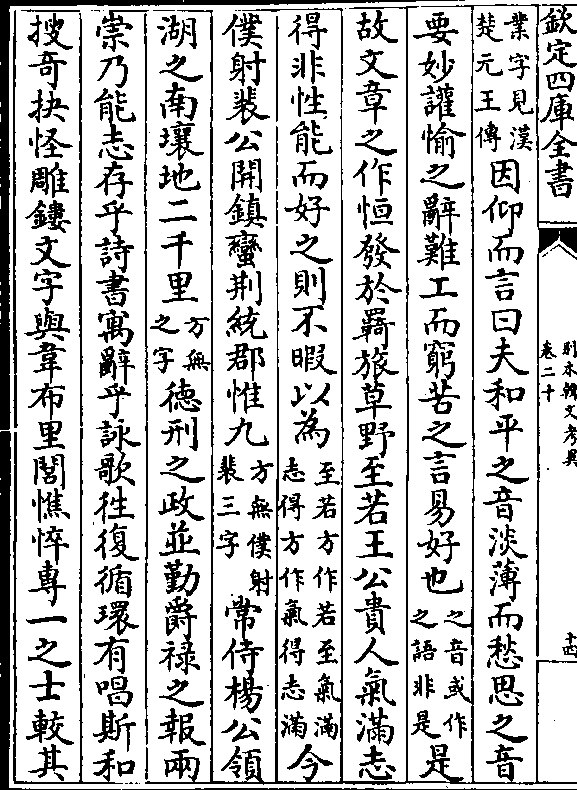 欽定四庫全書
別本韓文考異
卷二十
十四
業字見漢
楚元王傳
因仰而言曰夫和平之音淡薄而愁思之音
要妙讙愉之辭難工而窮苦之言易好也
之音或作
之語非是
是
故文章之作恒發於羇旅草野至若王公貴人氣滿志
得非性能而好之則不暇以為
至若方作若至氣滿
志得方作氣得志滿
今
僕射裴公開鎮蠻荆統郡惟九
方無僕射
裴三字
常侍楊公領
湖之南壤地二千里
方無
之字
德刑之政並勤爵禄之報兩
崇乃能志存乎詩書寓辭乎詠歌往復循環有唱斯和
搜奇抉怪雕鏤文字與韋布里閭憔悴專一之士較其